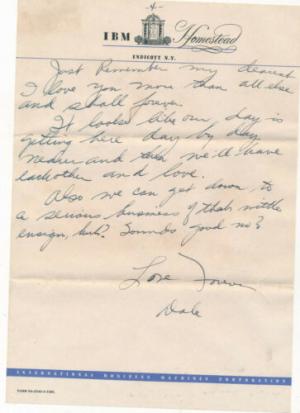 4
IBM Homestead
ENDICOTT N.Y.
Just Remember my dearest
I love you more than all else
and shall forever.
It looks like our day is
getting here day by day
nearer and then we'll have
eachother and love.
Also we can get down to
a serious business of that little
ensign, huh? Sounds good no?
Love Forever
Dale
INTERNATIONAL BUSINESS MACHINES CORPORATION